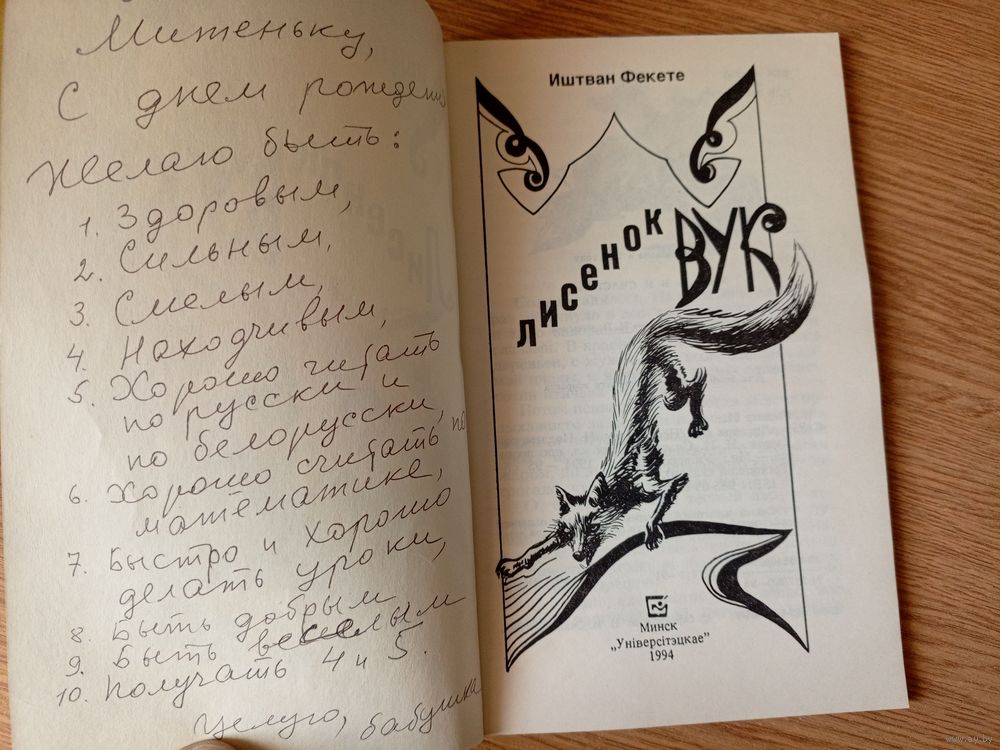 Митеньку,
С днем рождения
Желаю быть:
1. Здоровым,
2. Сильным,
3. Смелым,
4. Находчивым,
5. Хорошо читать
по русски и
по белорусски,
6. Хорошо считать по
математике,
7. Быстро и хорошо
делать уроки,
8. Быть добрым
9. Быть веселым
10. Получать 4 и 5.
Целую, бабушка
Иштван Фекете
ЛИСЕНОК ВУК
Минск
„Універсітэцкае”
1994
www.ay.by